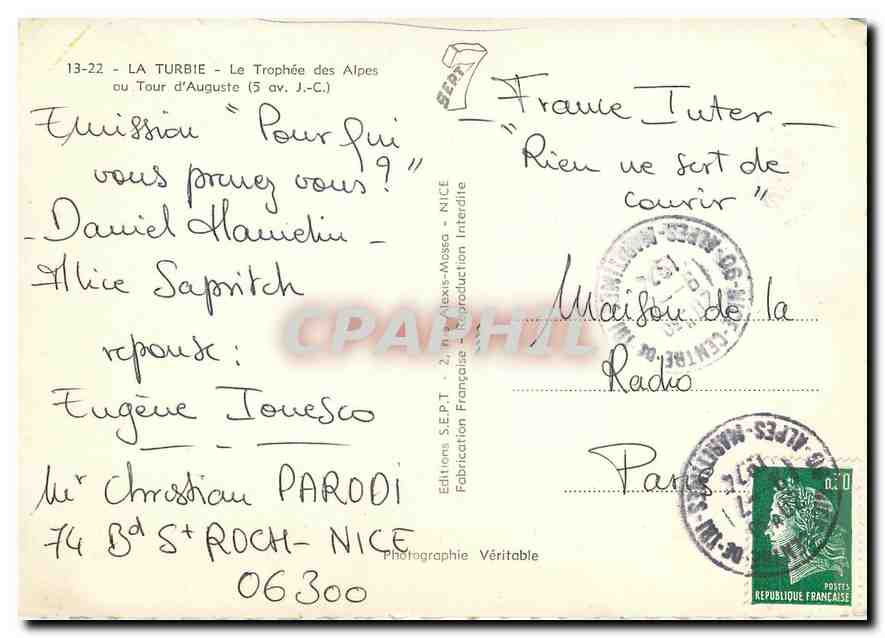 13-22 - LA TURBIE - Le Trophée des Alpes
ou Tour d'Auguste (5 av. J.-C.)
Emission " Pour qui
vous prenez vous ? "
- Daniel Hamelin -
Alice Sapritch
reponse :
Eugène Ionesco
Mr Christian PARODI
74 Bd St ROCH - NICE
06300
SEPT 7
Editions S.E.P.T. - 2, rue Alexis-Mossa - NICE
Fabrication Française - Reproduction Interdite
Photographie Véritable
- France Inter -
" Rien ne sert de
courir "
Maison de la
Radio
Paris
06 - NICE-CENTRE DE TRI
ALPES-MARITIMES
ALPES-MARITIMES
DE TRI
0,30
POSTES
REPUBLIQUE FRANÇAISE
CPAPHIL